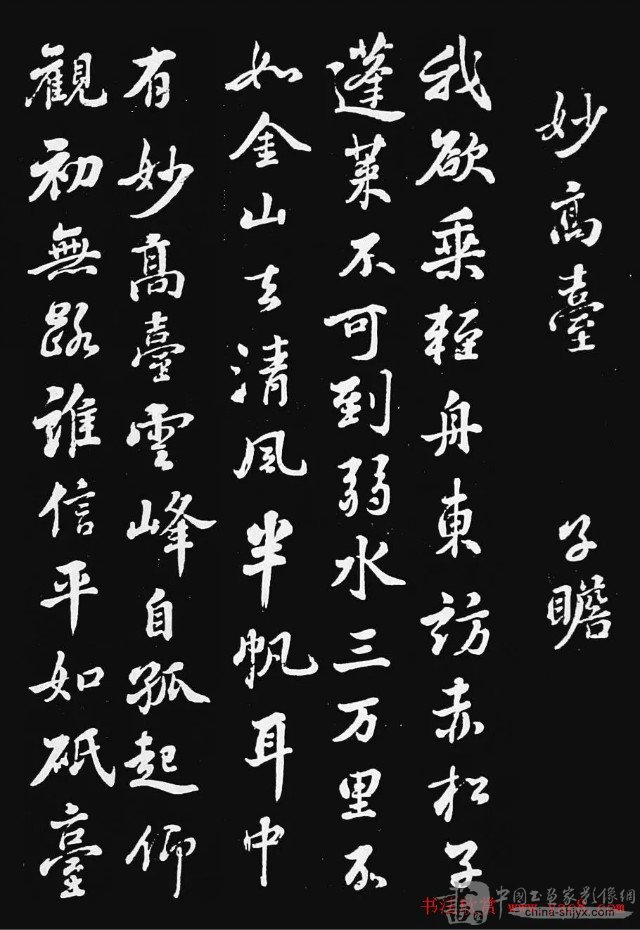 妙高臺 子瞻
我欲乘輕舟東訪赤松子
蓬萊不可到弱水三万里不
如金山去清風半帆耳中
有妙高臺雲峰自孤起仰
觀初無路誰信平如砥臺
中國书画家影像網
china-shjyx.com